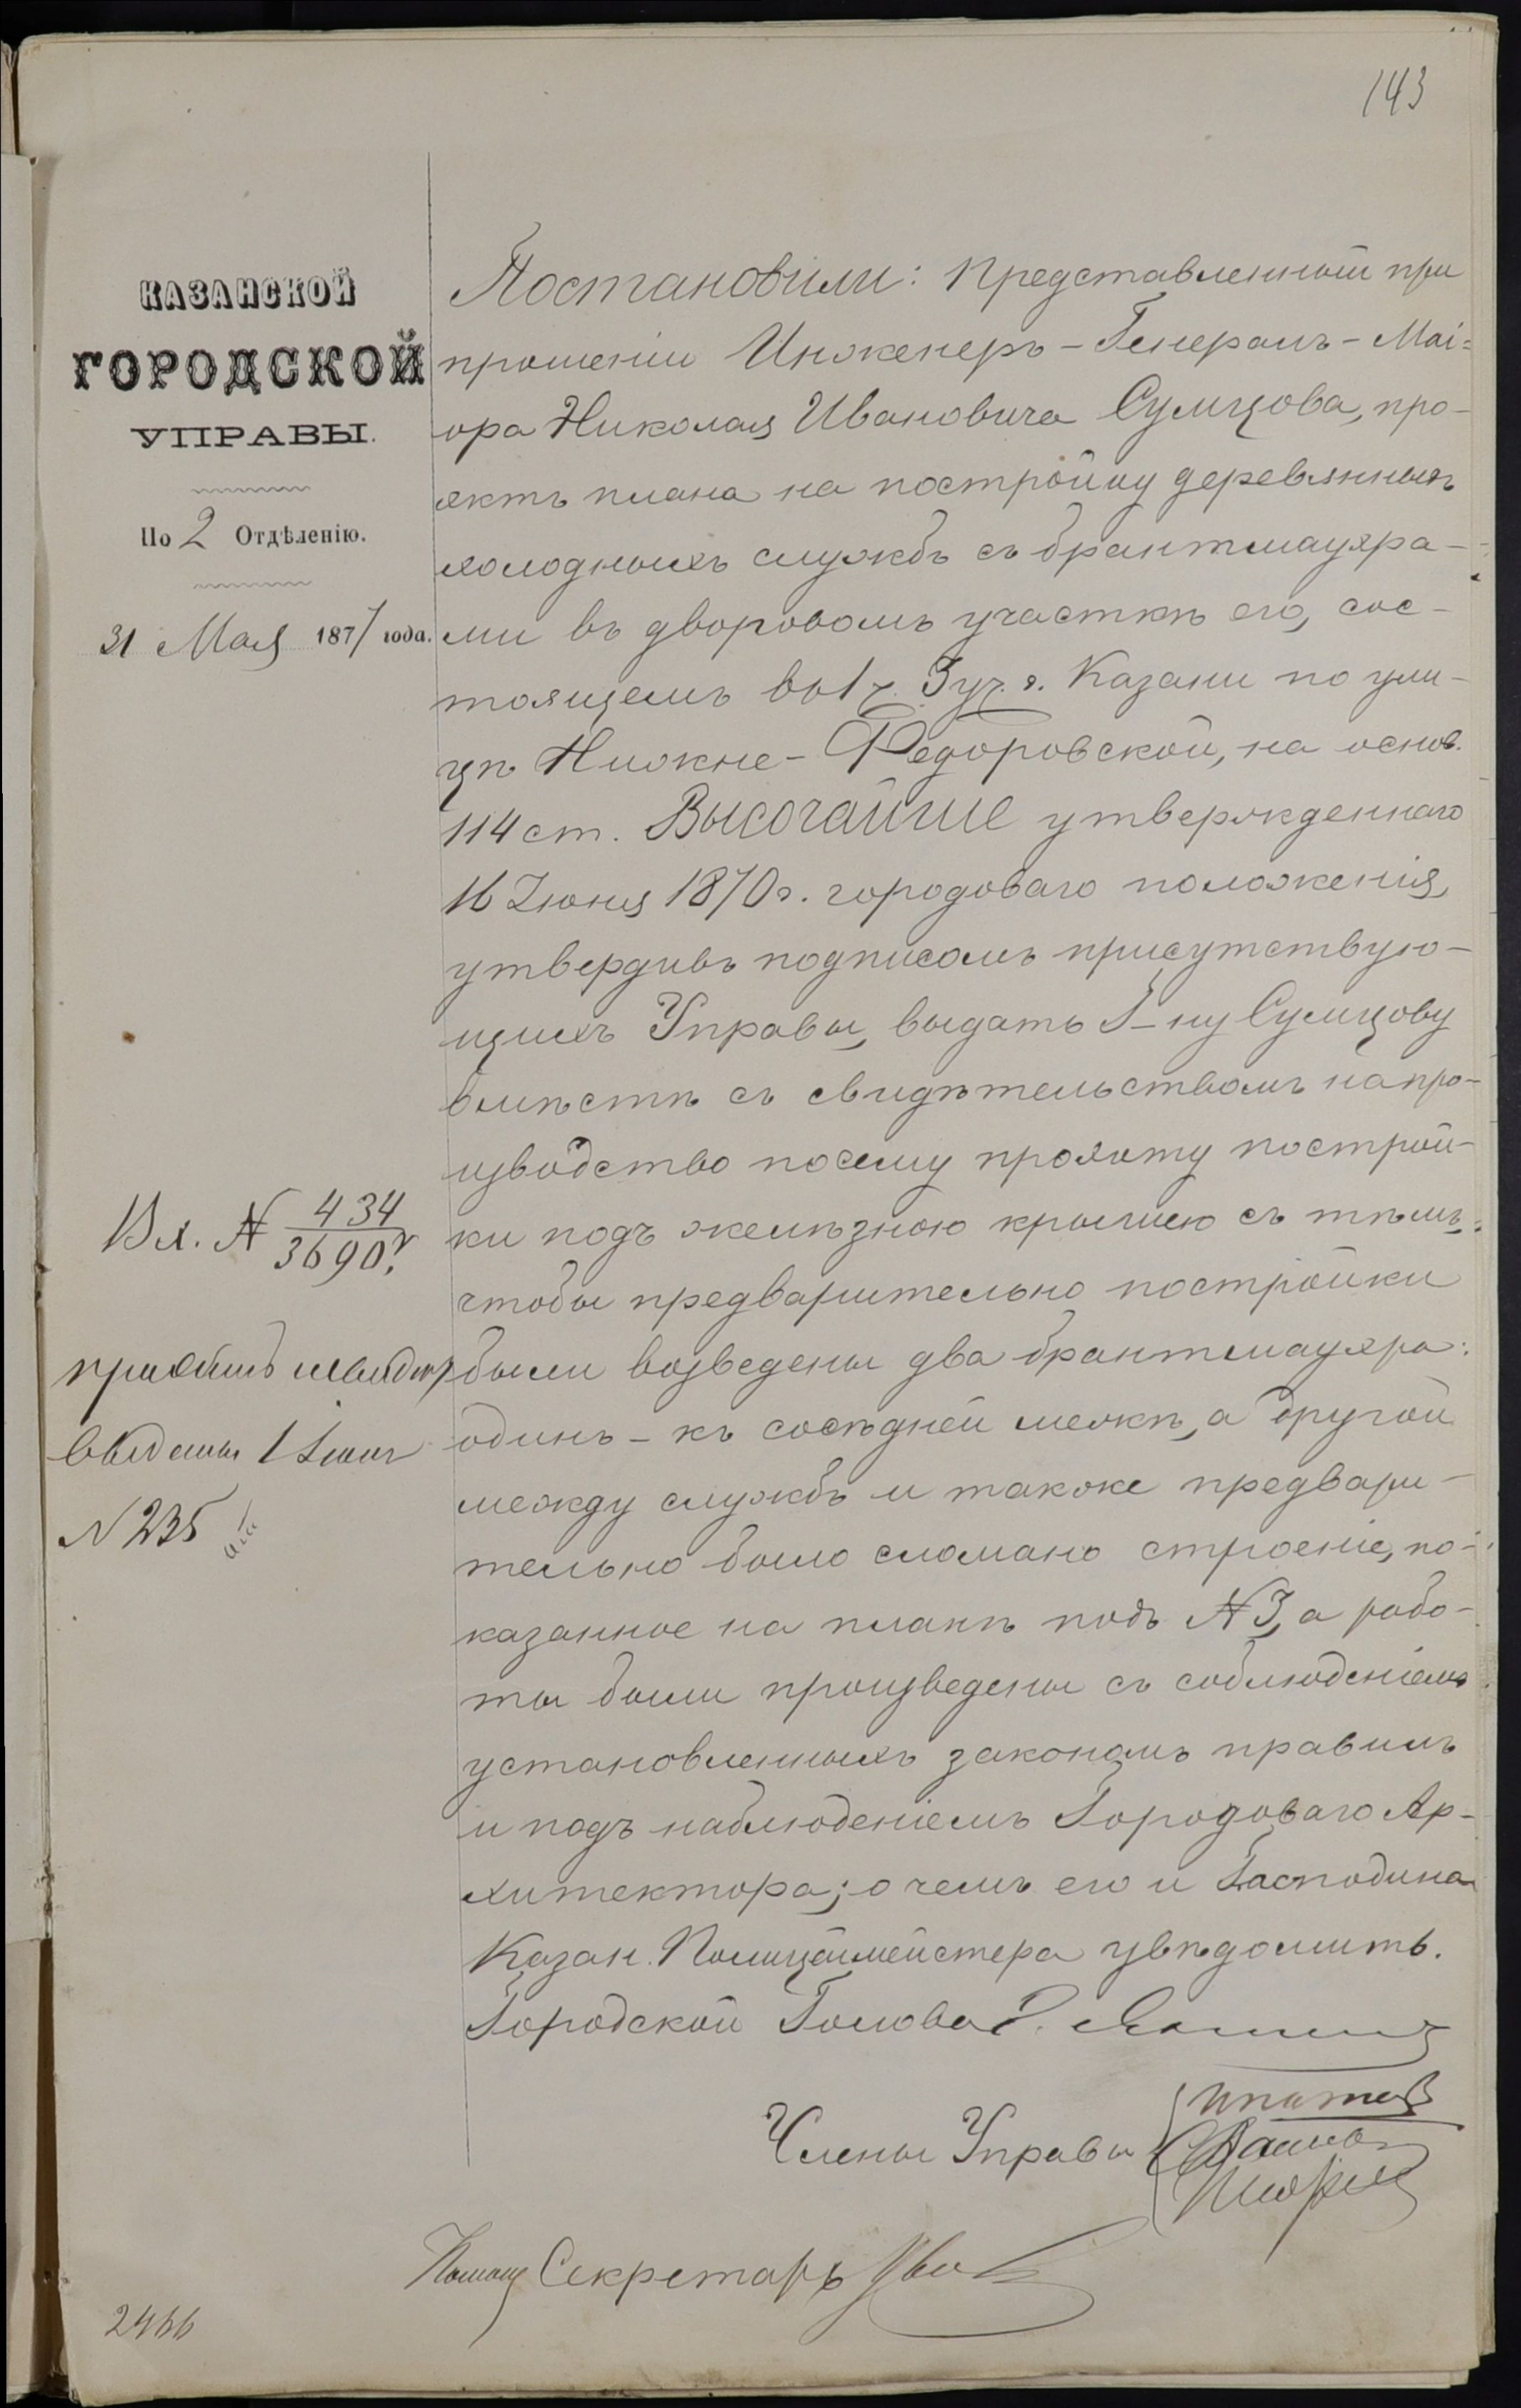 143
КАЗАНСКОЙ
ГОРОДСКОЙ
УПРАВЫ.
По 2 Отдѣленію.
31 Мая 1877 года.
Постановили: Представленный при
прошеніи Инженеръ-Генералъ-Маі=
ора Николая Ивановича Сумцова, про-
эктъ плана на постройку деревянныхъ
холодныхъ службъ съ брантмауэра-
ми въ дворовомъ участкѣ его, сос-
тоящемъ во 1 ч. 3 уч. г. Казани по ули-
цѣ Нижне-Федоровской, на основ.
114 ст. Высочайше утвержденнаго
16 Іюня 1870 г. городоваго положенія,
утвердивъ подписомъ присутствую-
щихъ Управы, выдать Г-ну Сумцову
вмѣстѣ съ свидѣтельствомъ на про-
изводство посему проэкту построй-
ки подъ желѣзною крышею съ тѣмъ,
чтобы предварительно постройки
были возведены два брантмауэра:
одинъ - къ сосѣдней межѣ, а другой
между службъ и также предвари-
тельно было сломано строеніе, по-
казанное на планѣ подъ № 3, а рабо-
ты были произведены съ соблюденіемъ
установленныхъ закономъ правилъ
и подъ наблюденіемъ Городоваго Ар-
хитектора; о чемъ его и Господина
Казан. Полицеймейстера увѣдомить.
Городской Голова
Члены Управы
Помощ Секретарь
Вх. № 434
3690.
1 Іюня
№ 235
2466